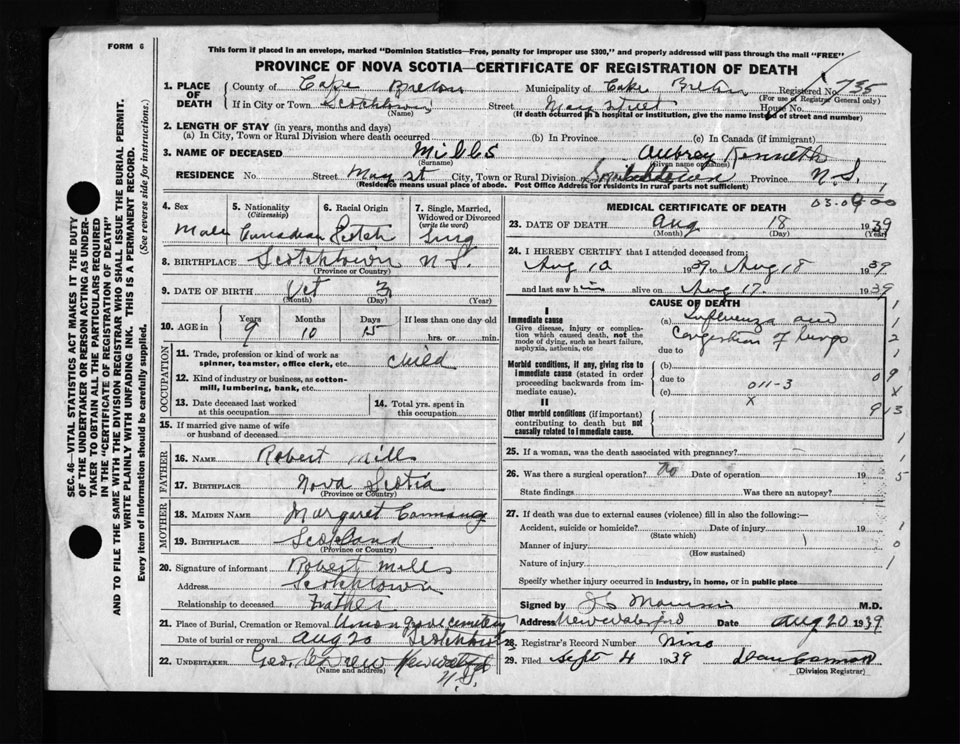 FORM 6
This form if placed in an envelope, marked "Dominion Statistics—Free, penalty for improper use $300," and properly addressed will pass through the mail "FREE"
PROVINCE OF NOVA SCOTIA—CERTIFICATE OF REGISTRATION OF DEATH
1. PLACE OF DEATH
County of Cape Breton Municipality of Cake Breton Registered No. 735
(For use of Registrar General only)
If in City or Town Scotchtown Street May Street House No.
(Name) (If death occurred in a hospital or institution, give the name instead of street and number)
2. LENGTH OF STAY (in years, months and days)
(a) In City, Town or Rural Division where death occurred (b) In Province (c) In Canada (if immigrant)
3. NAME OF DECEASED Mills Aubrey Kenneth
(Surname) (Given name or names)
RESIDENCE No. Street May St City, Town or Rural Division Province N.S.
(Residence means usual place of abode. Post Office Address for residents in rural parts not sufficient)
4. Sex 5. Nationality (Citizenship) 6. Racial Origin 7. Single, Married, Widowed or Divorced (write the word)
Male Canadian Scotch Sing
8. BIRTHPLACE Scotchtown N S.
(Province or Country)
9. DATE OF BIRTH Oct 3
(Month) (Day) (Year)
10. AGE in Years Months Days If less than one day old
9 10 15 hrs. or min.
OCCUPATION
11. Trade, profession or kind of work as spinner, teamster, office clerk, etc. Child
12. Kind of industry or business, as cotton-mill, lumbering, bank, etc.
13. Date deceased last worked at this occupation 14. Total yrs. spent in this occupation
15. If married give name of wife or husband of deceased
FATHER
16. NAME Robert Mill
17. BIRTHPLACE Nova Scotia
(Province or Country)
MOTHER
18. MAIDEN NAME Margaret
19. BIRTHPLACE Scotland
(Province or Country)
20. Signature of informant Robert Mills
Address Scotchtown
Relationship to deceased Father
21. Place of Burial, Cremation or Removal Union grove cemetery
Date of burial or removal Aug 20 Scotchtown
22. UNDERTAKER Geo. New Waterford
(Name and address)
N.S.
MEDICAL CERTIFICATE OF DEATH
23. DATE OF DEATH Aug 18 1939
(Month) (Day) (Year)
24. I HEREBY CERTIFY that I attended deceased from:
Aug 10 1939 to Aug 18 1939
and last saw him alive on Aug 17. 1939
CAUSE OF DEATH
I
Immediate cause
Give disease, injury or complication which caused death, not the mode of dying, such as heart failure, asphyxia, asthenia, etc
(a) Influenza and
Congestion of lungs
due to
Morbid conditions, if any, giving rise to immediate cause (stated in order proceeding backwards from immediate cause).
(b)
due to
(c)
011-3
X
II
Other morbid conditions (if important) contributing to death but not causally related to immediate cause.
25. If a woman, was the death associated with pregnancy?
26. Was there a surgical operation? No Date of operation 19
State findings Was there an autopsy?
27. If death was due to external causes (violence) fill in also the following:—
Accident, suicide or homicide? Date of injury 19
(State which)
Manner of injury
(How sustained)
Nature of injury
Specify whether injury occurred in industry, in home, or in public place
Signed by M.D.
Address New Waterford Date Aug 20 1939
28. Registrar's Record Number Nine
29. Filed Sept 4 1939
(Division Registrar)
SEC. 46—VITAL STATISTICS ACT MAKES IT THE DUTY
OF THE UNDERTAKER OR PERSON ACTING AS UNDERTAKER TO OBTAIN ALL THE PARTICULARS REQUIRED
IN THE "CERTIFICATE OF REGISTRATION OF DEATH"
AND TO FILE THE SAME WITH THE DIVISION REGISTRAR WHO SHALL ISSUE THE BURIAL PERMIT.
WRITE PLAINLY WITH UNFADING INK. THIS IS A PERMANENT RECORD.
Every item of information should be carefully supplied. (See reverse side for instructions.)